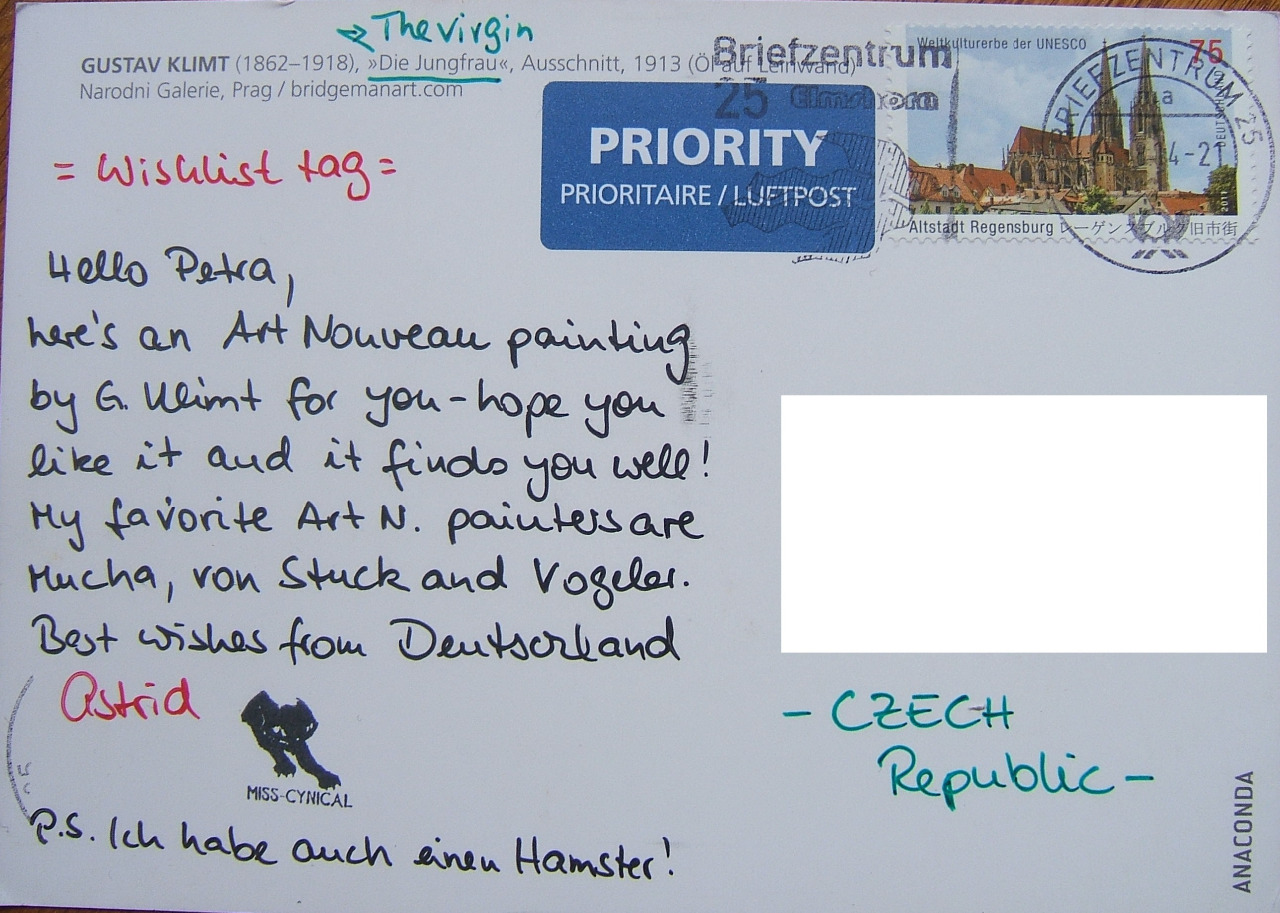 → The virgin
GUSTAV KLIMT (1862–1918), »Die Jungfrau«, Ausschnitt, 1913 (Öl auf Leinwand)
Narodni Galerie, Prag / bridgemanart.com
Briefzentrum
25 Elmshorn
PRIORITY
PRIORITAIRE / LUFTPOST
Weltkulturerbe der UNESCO
75
Altstadt Regensburg レーゲンスブルク旧市街
DEUTSCHLAND
2011
BRIEFZENTRUM 25
= Wishlist tag =
Hello Petra,
here's an Art Nouveau painting
by G. Klimt for you - hope you
like it and it finds you well!
My favorite Art N. painters are
Mucha, von Stuck and Vogeler.
Best wishes from Deutschland
Astrid
MISS-CYNICAL
P.S. Ich habe auch einen Hamster!
- CZECH
Republic -
ANACONDA